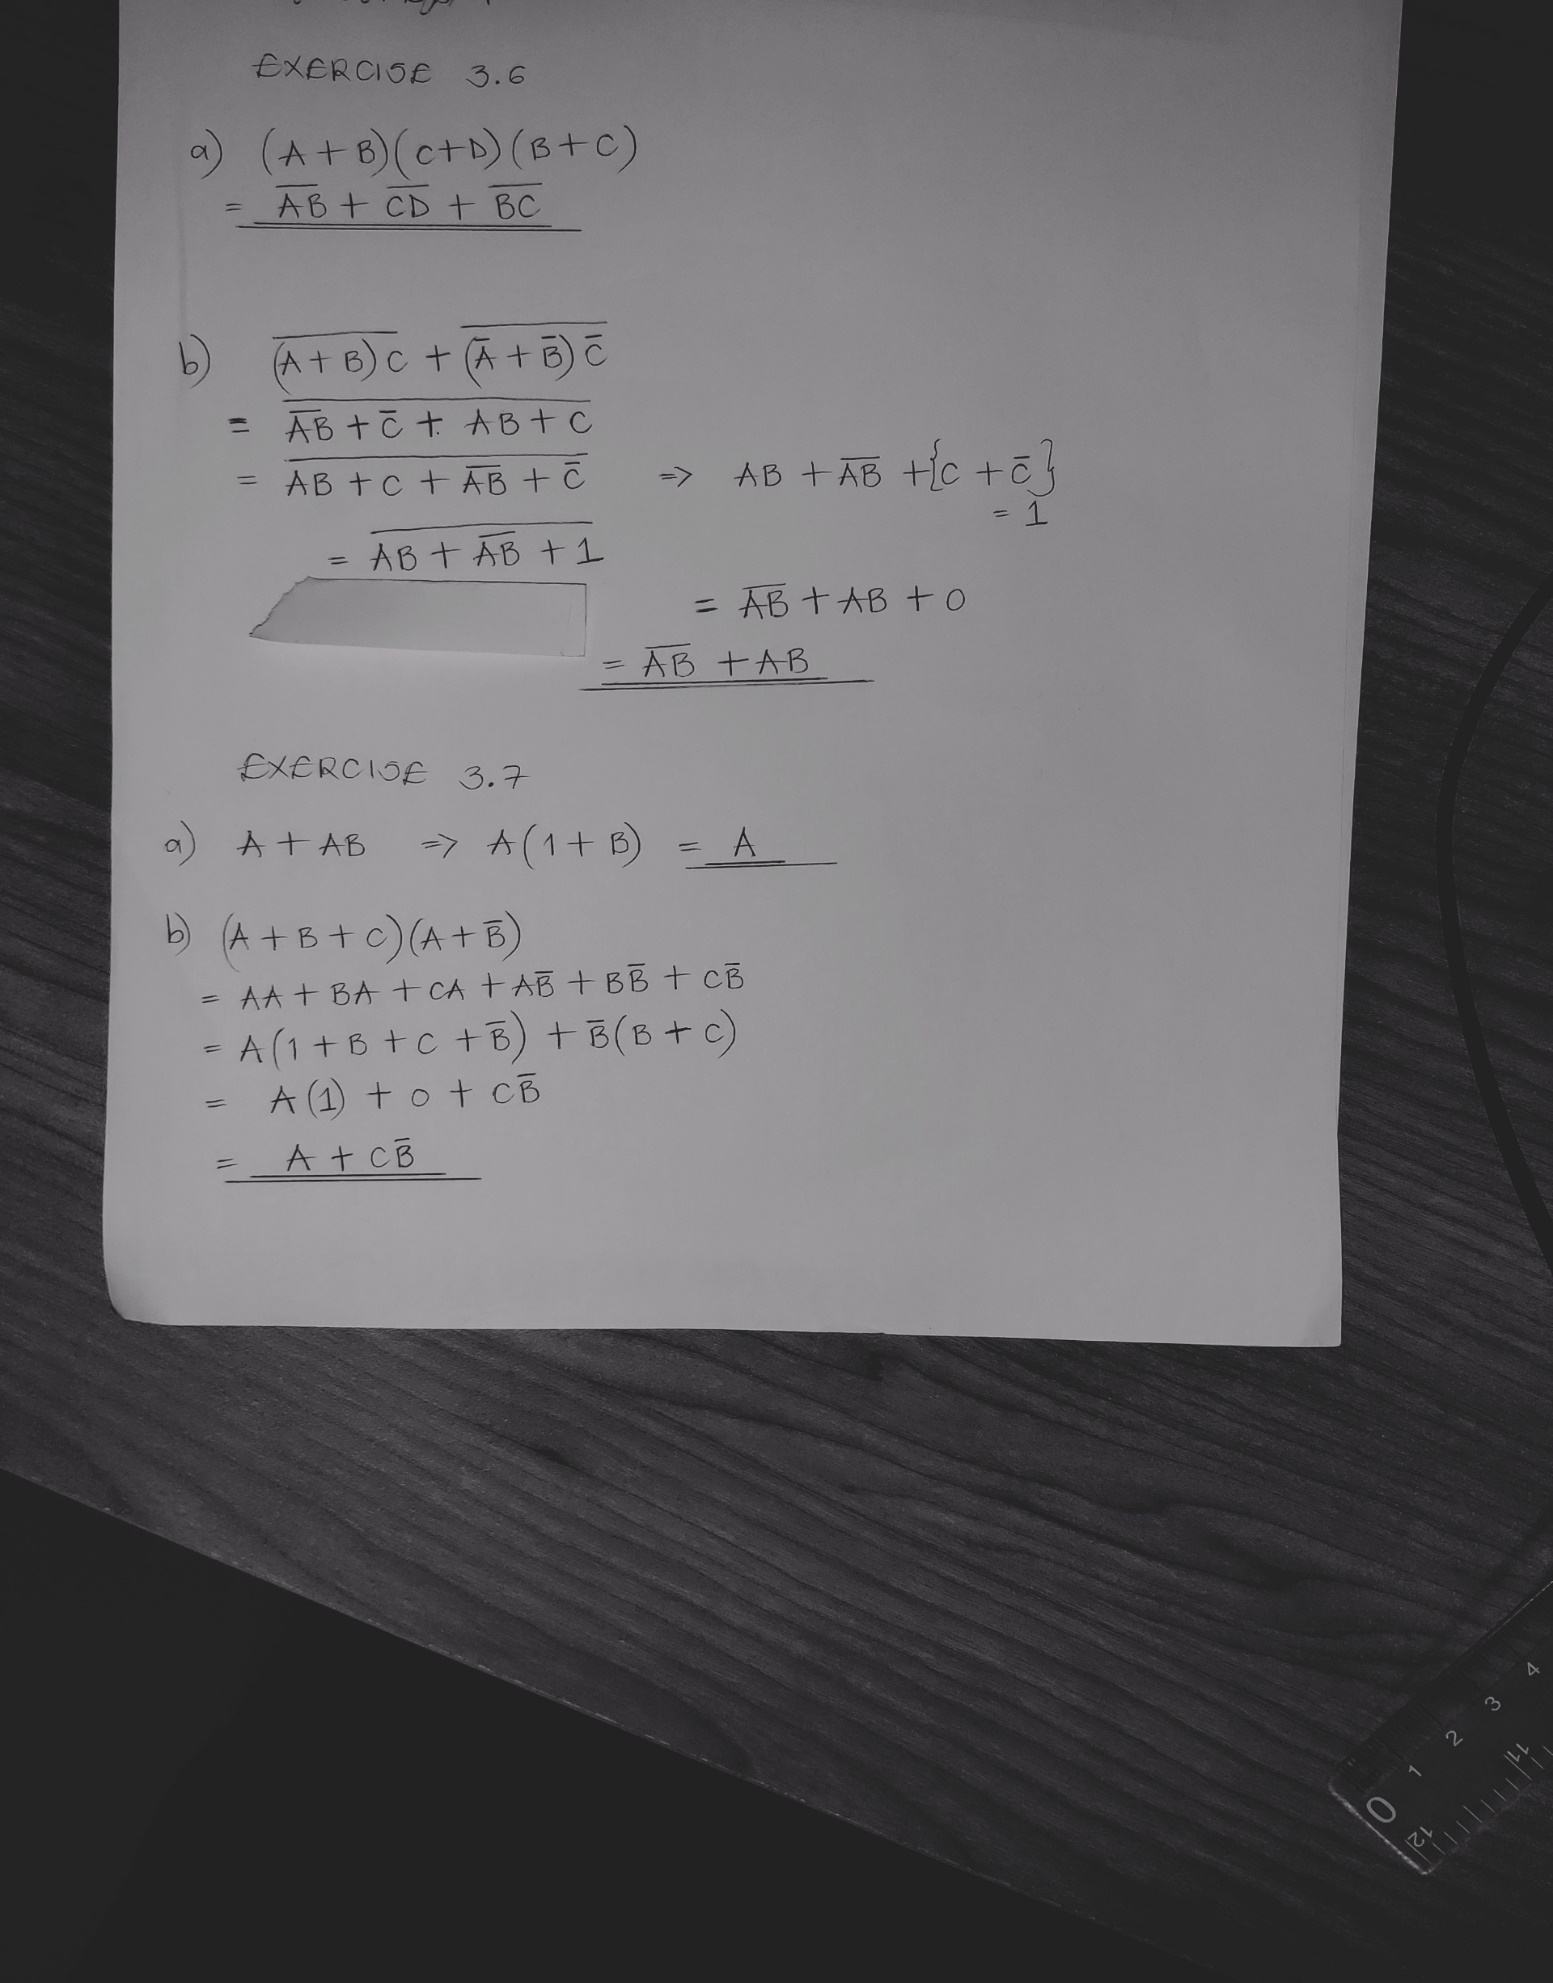 EXERCISE 3.6
a) (A + B)(C+D)(B+C)
= A̅B̅ + C̅D̅ + B̅C̅
b) \overline{(A+B)C} + \overline{(A̅ + B̅)C̅}
= \overline{A̅B̅ + C̅ + AB + C}
= \overline{AB + C + A̅B̅ + C̅} => AB + A̅B̅ + {C + C̅}
= 1
= \overline{AB + A̅B̅ + 1}
= A̅B̅ + AB + 0
= A̅B̅ + AB
EXERCISE 3.7
a) A + AB => A(1 + B) = A
b) (A + B + C)(A + B̅)
= AA + BA + CA + AB̅ + BB̅ + CB̅
= A(1 + B + C + B̅) + B̅(B + C)
= A(1) + 0 + CB̅
= A + CB̅
0 1 2 3 4
12 11